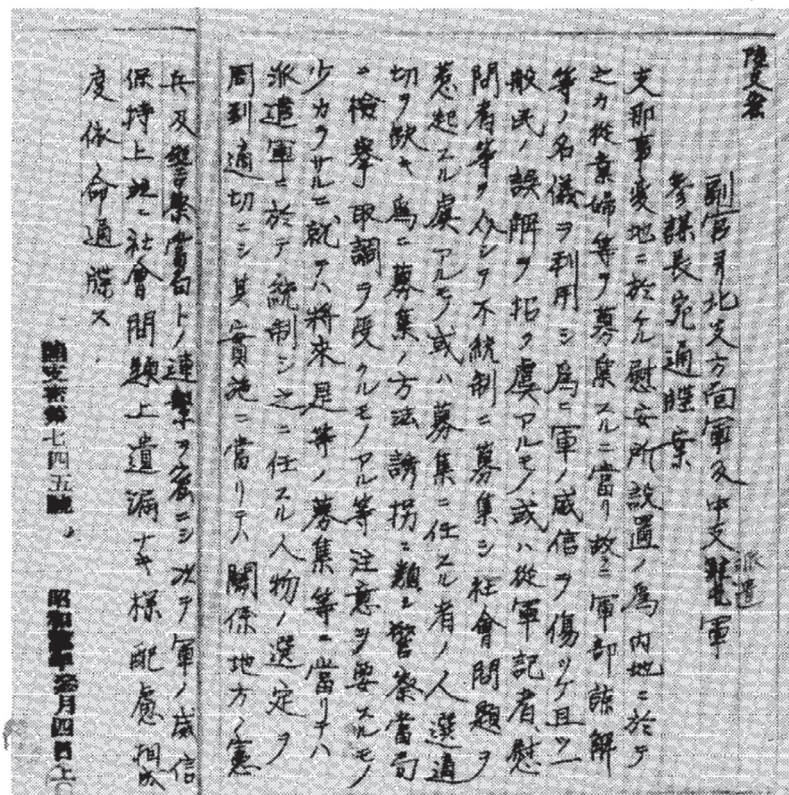 陸支密
副官ヨリ北支方面軍及中支派遣軍
參謀長宛通牒案
支那事変地ニ於ケル慰安所設置ノ爲内地ニ於テ
之カ從業婦等ヲ募集スルニ當リ故ラニ軍部諒解
等ノ名儀ヲ利用シ爲ニ軍ノ威信ヲ傷ツケ且ツ一
般民ノ誤解ヲ招ク虞アルモノ或ハ從軍記者、慰
問者等ヲ介シテ不統制ニ募集シ社會問題ヲ
惹起スル虞アルモノ或ハ募集ニ任スル者ノ人選適
切ヲ欠キ爲ニ募集ノ方法誘拐ニ類シ警察當局
ニ檢擧取調ヲ受クルモノアル等注意ヲ要スルモノ
少カラサルニ就テハ將來是等ノ募集等ニ當リテハ
派遣軍ニ於テ統制シ之ニ任スル人物ノ選定ヲ
周到適切ニシ其實施ニ當リテハ關係地方ノ憲
兵及警察當局トノ連繋ヲ密ニシ次テ軍ノ威信
保持上並ニ社會問題上遺漏ナキ樣配慮相成
度依命通牒ス
陸支密第七四五號
昭和拾參年參月四日